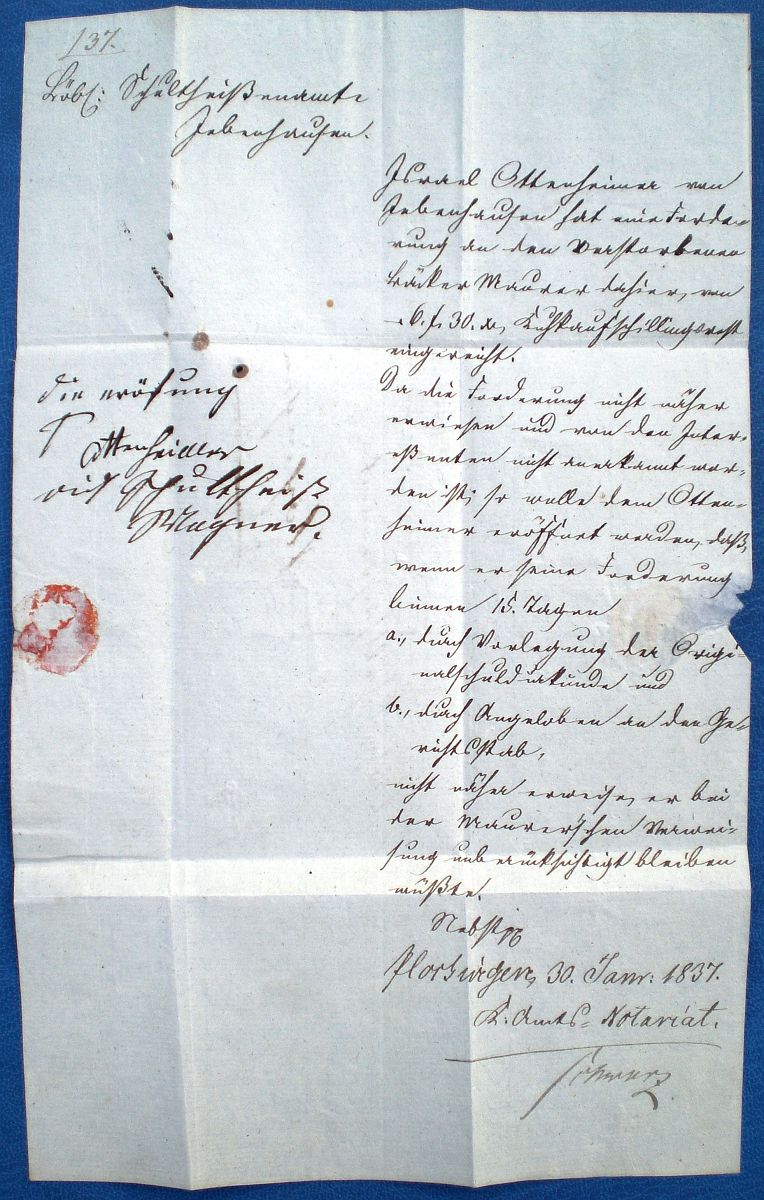 137.
Löbl: Schultheißenamte
Jebenhausen.
Israel Ottenheimer von
Jebenhausen hat eine Forde-
rung an den verstorbenen
Bäcker Maurer dahier, von
6. f. 30. x, Kuhkaufschillingsrest
eingereicht.
Da die Forderung nicht näher
erwiesen und von den Inter-
eßenten nicht anerkannt wor-
den ist; so wolle dem Otten-
heimer eröffnet werden, daß,
wenn er seine Forderung
binnen 15. Tagen
a., durch Vorlegung der Origi-
nalschuldurkunde und
b., durch Angeloben an den Ge-
richtsstab,
nicht näher erweise, er bei
der Maurer'schen Verwei-
sung unberücksichtigt bleiben
müßte.
Plochingen, 30. Janr: 1837.
K: Amts-Notariat.
Schwarz
die eröfung
Schultheiß
Wagner.